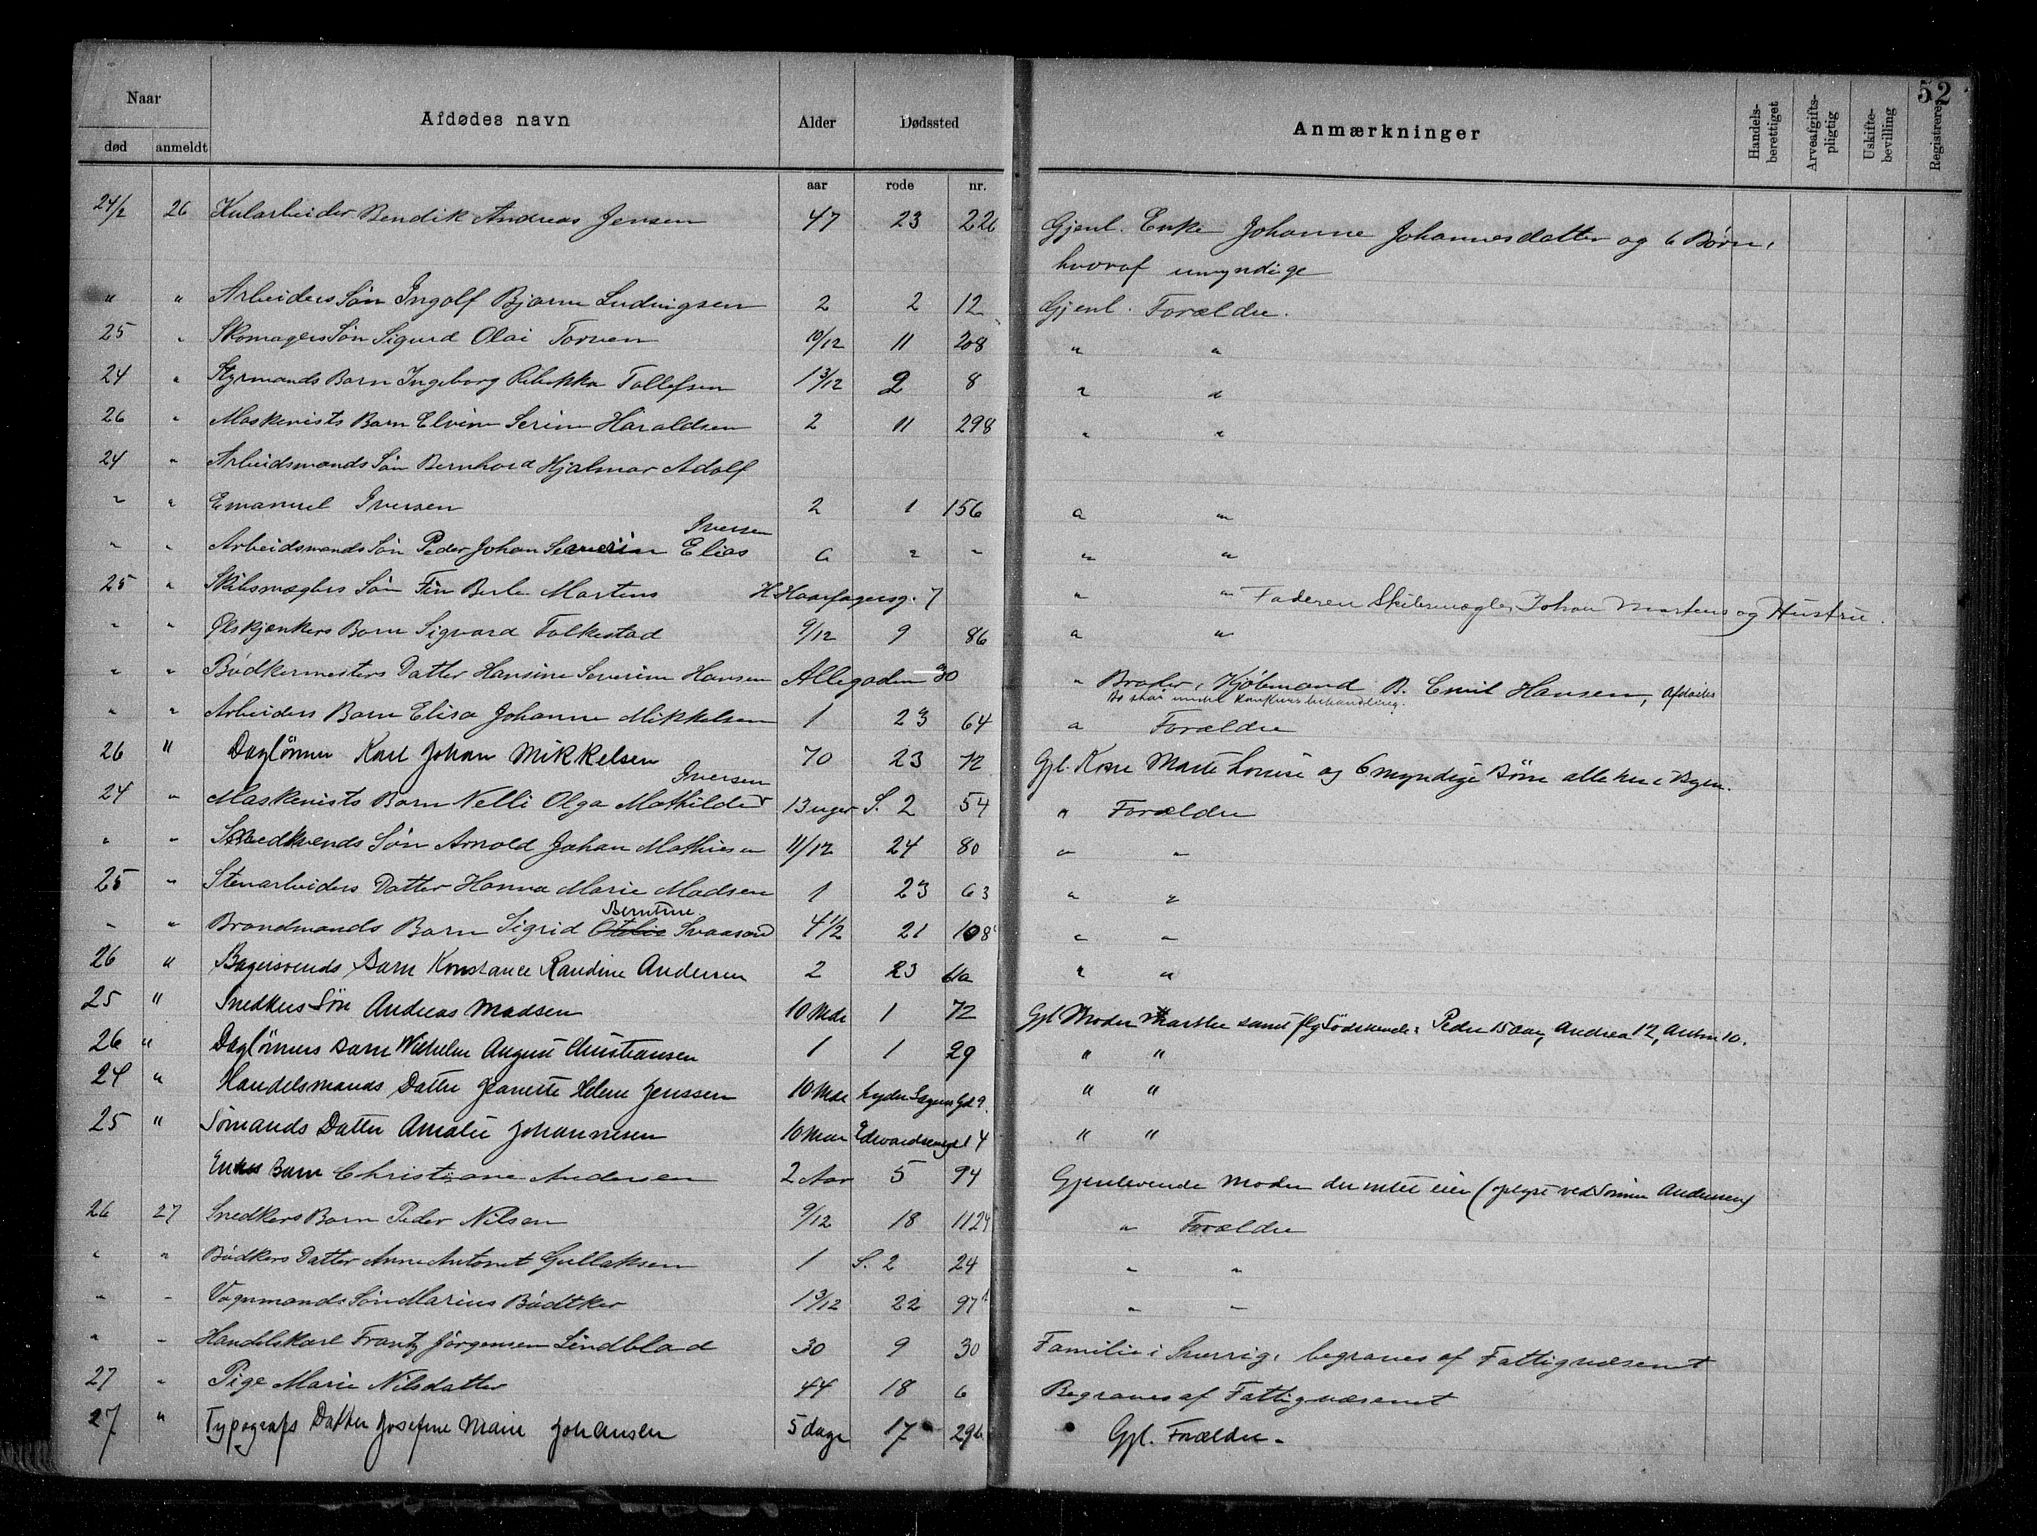 52
Naar
Afdødes navn
Alder
Dødssted
Anmærkninger
Handels-berettiget
Arveafgifts-pligtig
Uskifte-bevilling
Registreret
død anmeldt
aar rode nr.
24/2 26 Kularbeider Bendik Andreas Jensen 47 23 226 Gjenl. Enke Johanne Johannesdatter og 6 Børn,
hvoraf umyndige
" " Arbeiders Søn Ingolf Bjarne Ludvigsen 2 2 12 Gjenl. Forældre.
25 " Skomagers Søn Sigurd Olai 10/12 11 208 " "
24 " Styrmands Barn Ingeborg Rebekka Tollefsen 1 3/12 2 8 " "
26 " Maskinists Barn Elvine Serine Haraldsen 2 11 298 " "
24 " Arbeidsmands Søn Bernhard Hjalmar Adolf
" " Emanuel Iversen 2 1 156 " "
Iversen
" " Arbeidsmands Søn Peder Johan Severin Elias 6 " " " "
25 " Skibsmæglers Søn Fin Berle Martens H. Haarfagersg. 7 " " Faderen Skibsmægler Johan Martens og Hustru.
" " Ølskjænkers Barn Sigvard Folkestad 9/12 9 86 " "
" " Bødkermesters Datter Hansine Severine Hansen Allegaden 30 " Broder, Kjøbmand B. Emil Hansen, Afdødes
Bo staar under Konkursbehandling.
" " Arbeiders Barn Elisa Johanne Mikkelsen 1 23 64 " Forældre
26 " Daglønner Karl Johan Mikkelsen 70 23 72 Gjl. Kone Marte Lovise og 6 myndige Børn alle her i Byen.
Iversen
24 " Maskinists Barn Nelli Olga Mathilde 13 uger S. 2 54 " Forældre
" " Søn Arnold Johan Mathiesen 11/12 24 80 " "
25 " Stenarbeiders Datter Hanna Marie Madsen 1 23 63 " "
Berntine
" " Brandmands Barn Sigrid Svaasand 4 1/2 21 108 " "
26 " Bagersvends Barn Konstance Randine Andersen 2 23 61a " "
25 " Snedkers Søn Andreas Madsen 10 Mdr 1 72 Gjl Moder Marthe samt flg Sødskende: Peder 15 Aar, Andrea 12, Anton 10.
26 " Daglønners Barn Wilhelm August Christiansen 1 1 29 " "
24 " Handelsmands Datter Jeanette Helene Jenssen 10 Mdr Lyder Sagens Gd 9. " "
25 " Sømands Datter Amalie Johannesen 10 Mdr Edvardsengd 4 " "
Enkes Barn Christiane Andersen 2 Aar 5 94 Gjenlevende Moder der intet eier (oplyst ved Andersen)
26 27 Snedkers Barn Peder Nilsen 9/12 18 112 " Forældre
" " Bødkers Datter Anne Antonet Gullaksen 1 S. 2 24 " "
" " Vognmands Søn Marius Bødtker 1 3/12 22 97 " "
" " Handelskarl Frantz Jørgensen Lindblad 30 9 30 Familie i Sverrig, begraves af Fattigvæsenet
27 " Pige Marie Nilsdatter 44 18 6 Begraves af Fattigvæsenet
27 " Typografs Datter Josefine Marie Johansen 5 dage 17 296 Gjl. Forældre.